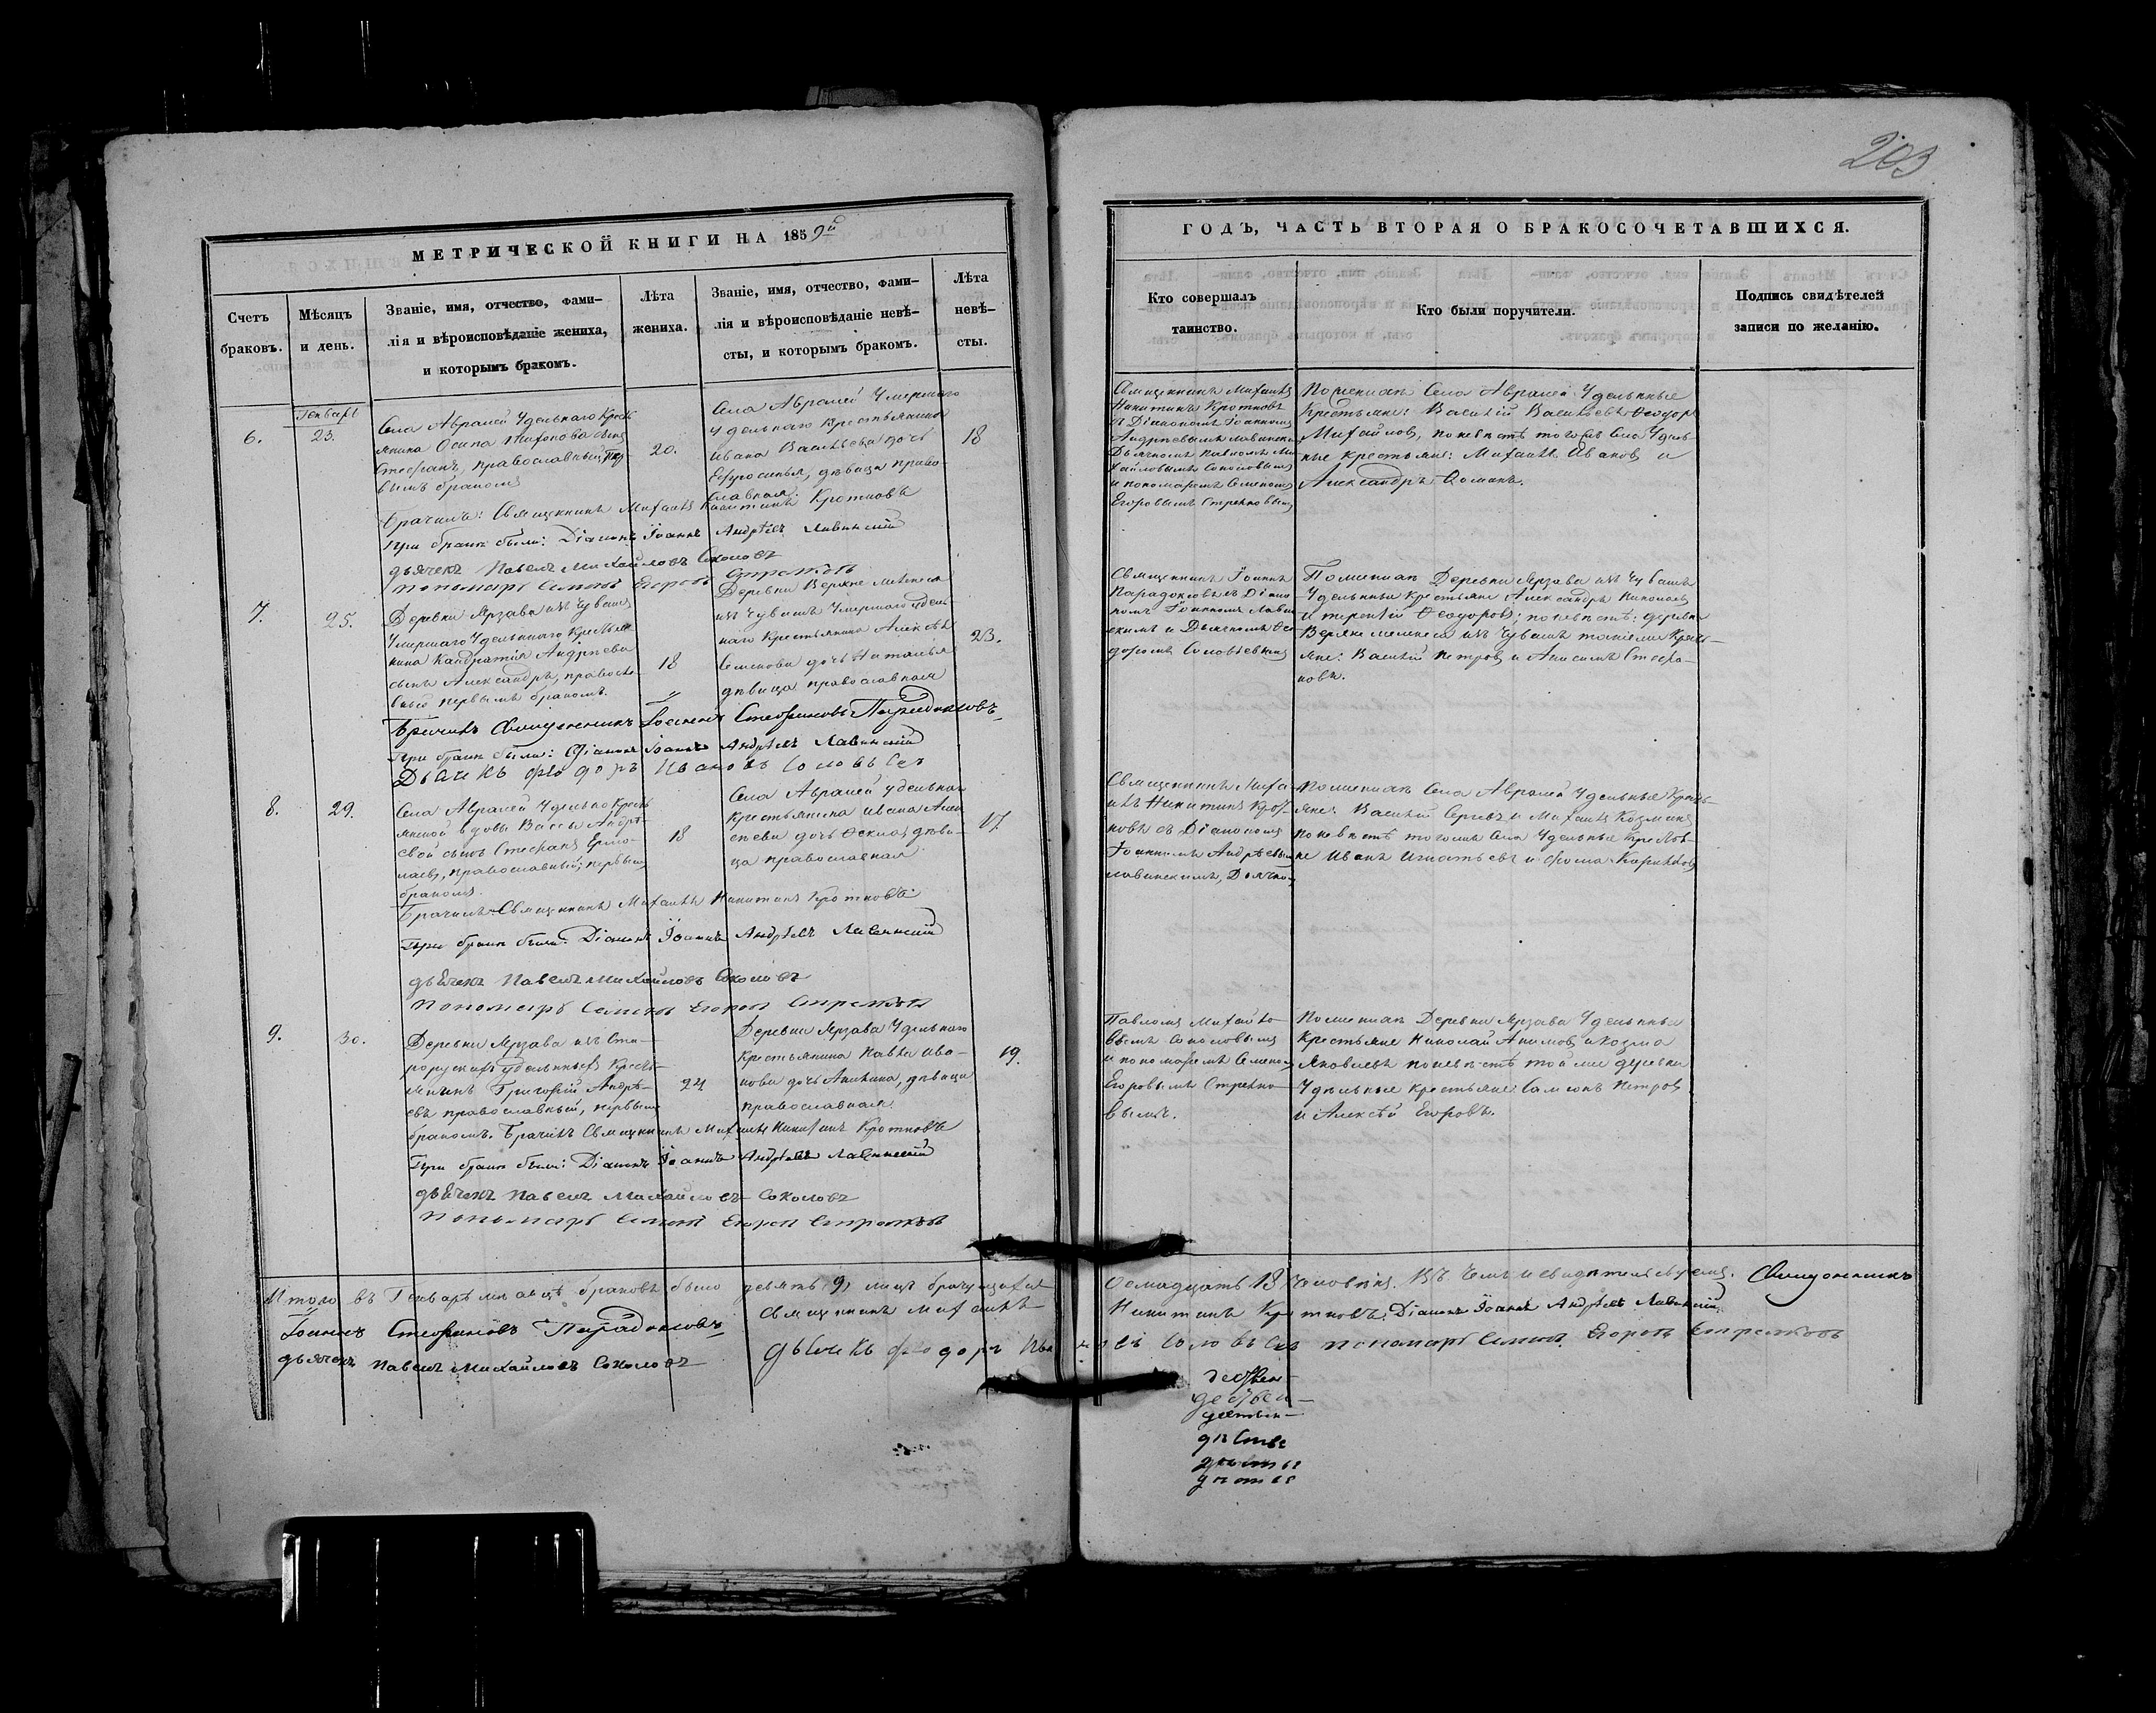 203
МЕТРИЧЕСКОЙ КНИГИ НА 1859й
ГОДЪ, ЧАСТЬ ВТОРАЯ О БРАКОСОЧЕТАВШИХСЯ.
Счетъ браковъ.
Мѣсяцъ и день.
Званіе, имя, отчество, фами-
лія и вѣроисповѣданіе жениха,
и которымъ бракомъ.
Лѣта
жениха.
Званіе, имя, отчество, фами-
лія и вѣроисповѣданіе невѣ-
сты, и которымъ бракомъ.
Лѣта
невѣ-
сты.
Кто совершалъ
таинство.
Кто были поручители.
Подпись свидѣтелей
записи по желанію.
Генварь
6.
23.
Села Авралей Удельнаго Кресть
янина Осипа
Стефанъ, православный, пер-
вымъ бракомъ
20.
Села Авралей Умершаго
удельнаго Крестьянина
Ивана Васильева дочь
Ефросинья, дѣвица право-
славная.
18
Священникъ Михаилъ
Никитинъ Кротковъ
съ Діакономъ Іоанномъ
Дьячкомъ Павломъ Ми-
хайловымъ Соколовымъ
и пономаремъ Семеномъ
Егоровымъ
По женихѣ Села Авралей Удельные
Крестьяне: Василій Васильевъ Ѳеодоръ
Михайловъ, по невѣстѣ тогожъ Села Удель-
ные крестьяне: Михаилъ Ивановъ и
Александръ
Брачилъ: Священникъ Михаилъ Никитинъ Кротковъ
При бракѣ были: Діаконъ Іоаннъ Андрѣевъ
дьячекъ Павелъ Михайловъ Соколовъ
пономарь Семенъ Егоровъ
7.
25.
Деревни Ярзава изъ Чувашъ
Умершаго Удельнаго Крестья
нина Кандратія Андрѣева
сынъ Александръ, православ-
ный первымъ бракомъ.
18
Деревни
изъ Чувашъ Умершаго удель
наго крестьянина Алексѣя
Семенова дочь Наталья
дѣвица православная
23.
Священникъ Іоаннъ
Парадоксовъ съ Діако
номъ Іоанномъ
скимъ и Дьячкомъ Ѳео
доромъ Соловьевымъ
По женихѣ Деревни Ярзава изъ Чувашъ
Удельные крестьяне Александръ Николаевъ
и Терентій Ѳеодоровъ; по невѣстѣ: деревни
изъ Чувашъ такіеже Кресть-
яне: Василій Петровъ и Анисимъ Стефа-
новъ.
Брачилъ Священникъ Іоаннъ Стефановъ Парадоксовъ
При бракѣ были: Діаконъ Іоаннъ Андрѣевъ
Дьячекъ Федоръ Ивановъ Соловьевъ
8.
29.
Села Авралей Удельно Кресть
янской вдовы Вассы Андрѣ-
евой сынъ Стефанъ Ермо-
лаевъ, православный, первымъ
бракомъ.
18
Села Авралей удельнаго
крестьянина Ивана Алек
сѣева дочь Ѳекла, дѣви-
ца православная
17.
Священникъ Миха-
илъ Никитинъ Крот-
ковъ съ Діакономъ
Іоанномъ Андрѣевымъ
По женихѣ Села Авралей Удельные Кресть-
яне: Василій Сергѣевъ и Михаилъ Козминъ
по невѣстѣ тогоже Села Удельные Крестья-
не Иванъ Игнатьевъ и Фома
Брачилъ Священникъ Михаилъ Никитинъ Кротковъ
При бракѣ были: Діаконъ Іоаннъ Андрѣевъ
дьячекъ Павелъ Михайловъ Соколовъ
пономарь Семенъ Егоровъ
9.
30.
Деревни Ярзава изъ Ста-
рорускихъ удельныхъ Кресть-
янинъ Григорій Андрѣ-
евъ православный, первымъ
бракомъ.
24
Деревни Ярзава Удельнаго
крестьянина Павла Ива-
нова дочь Акилина, дѣвица
православная
19.
Павломъ Михайло-
вымъ Соколовымъ
и пономаремъ Семеномъ
Егоровымъ
вымъ.
По женихѣ Деревни Ярзава Удельные
Крестьяне Николай Акимовъ и Козма
Яковлевъ по невѣстѣ той же деревни
Удельные крестьяне: Самсонъ Петровъ
и Алексѣй Егоровъ.
Брачилъ Священникъ Михаилъ Никитинъ Кротковъ
При бракѣ были: Діаконъ Іоаннъ Андрѣевъ
дьячекъ Павелъ Михайловъ Соколовъ
пономарь Семенъ Егоровъ
Итого въ Генварѣ мѣсяцѣ браковъ было девять 9, лицъ брачущихся
Осмнадцать 18 человѣкъ. Въ чемъ и свидѣтельствуемъ. Священникъ
Іоаннъ Стефановъ Парадоксовъ Священникъ Михаилъ
Никитинъ Кротковъ. Діаконъ Іоаннъ Андрѣевъ
дьячекъ Павелъ Михайловъ Соколовъ Дьячекъ Федоръ Ивановъ Соловьевъ пономарь Семенъ Егоровъ